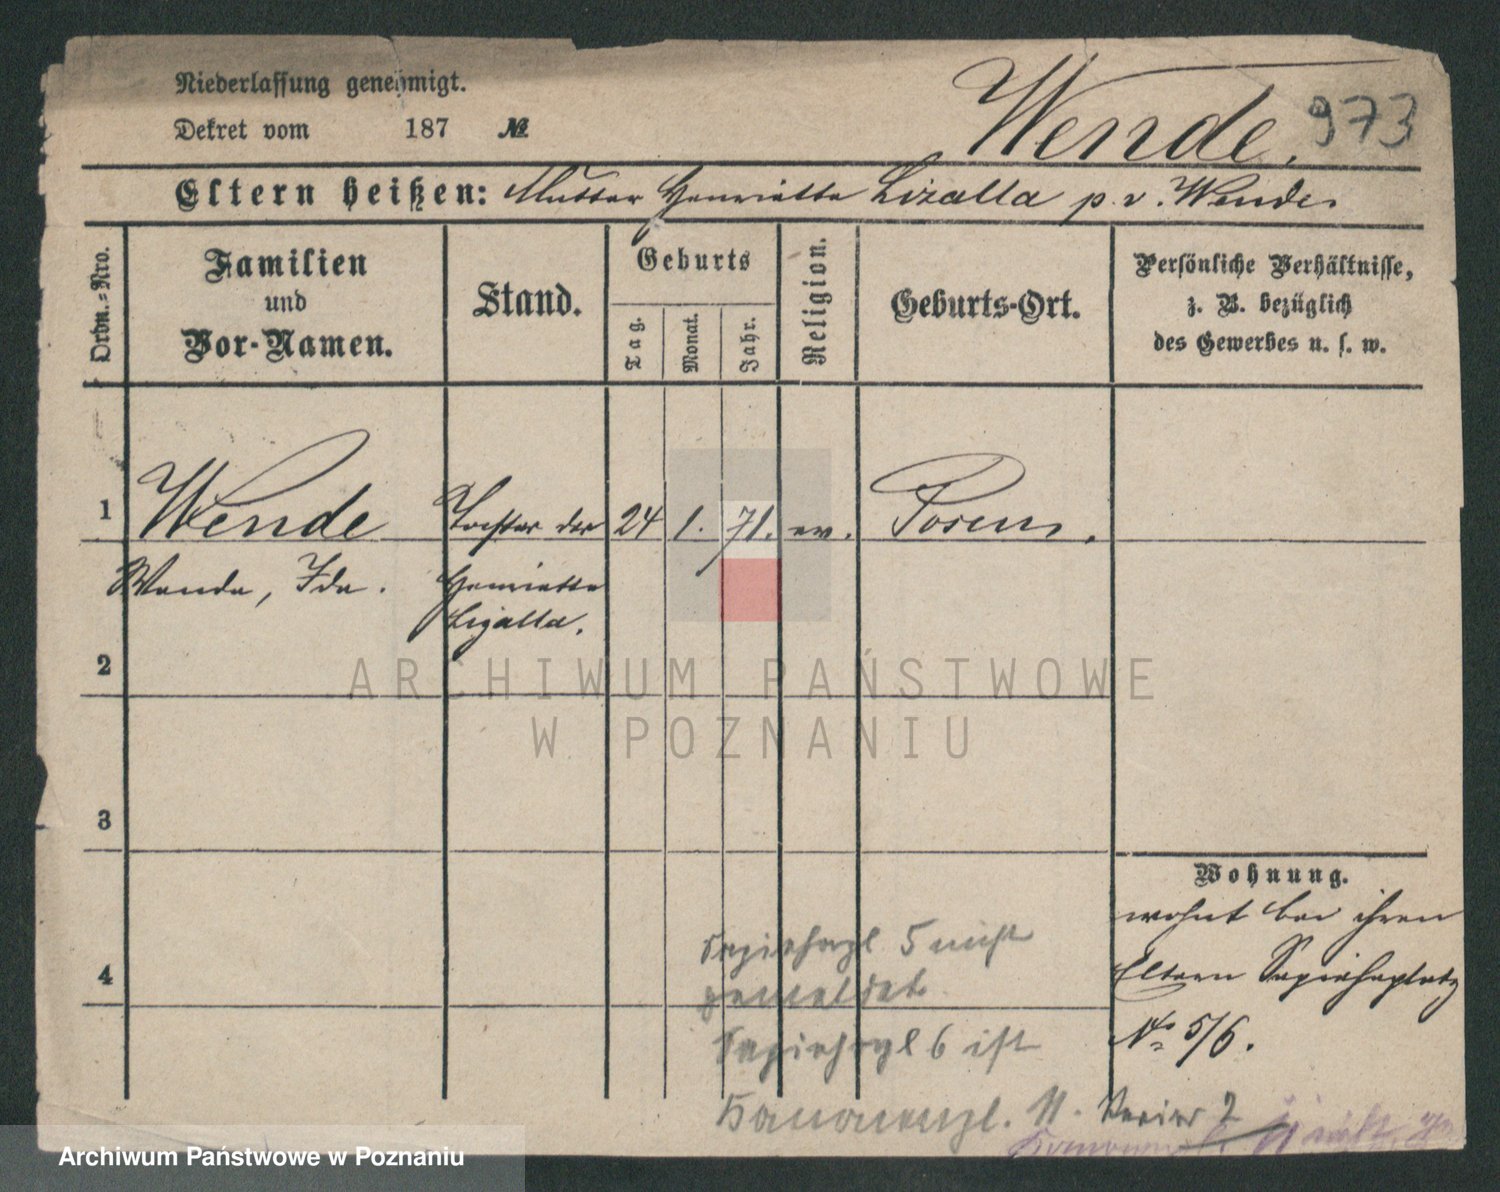 Niederlassung genehmigt.
Dekret vom 187 №
Wende. 973
Eltern heißen: Mutter Henriette Lizalla p. v. Wende.
Ordn.-Nro.
Familien
und
Vor-Namen.
Stand.
Geburts
Tag.
Monat.
Jahr.
Religion.
Geburts-Ort.
Persönliche Verhältnisse,
z. B. bezüglich
des Gewerbes u. s. w.
1 Wende Tochter der 24 1. 71. ev. Posen.
Wanda, Ida. Henriette
Lizalla.
2
ARCHIWUM PAŃSTWOWE
W POZNANIU
3
Wohnung.
wohnt bei ihren
Eltern Sapiehaplatz
No 5/6.
4
Sapiehapl 5 nicht
gemeldet
Sapiehapl 6 ist
Kanonenpl. 11. Revier 2
Kanonenpl. 11 nicht
Archiwum Państwowe w Poznaniu